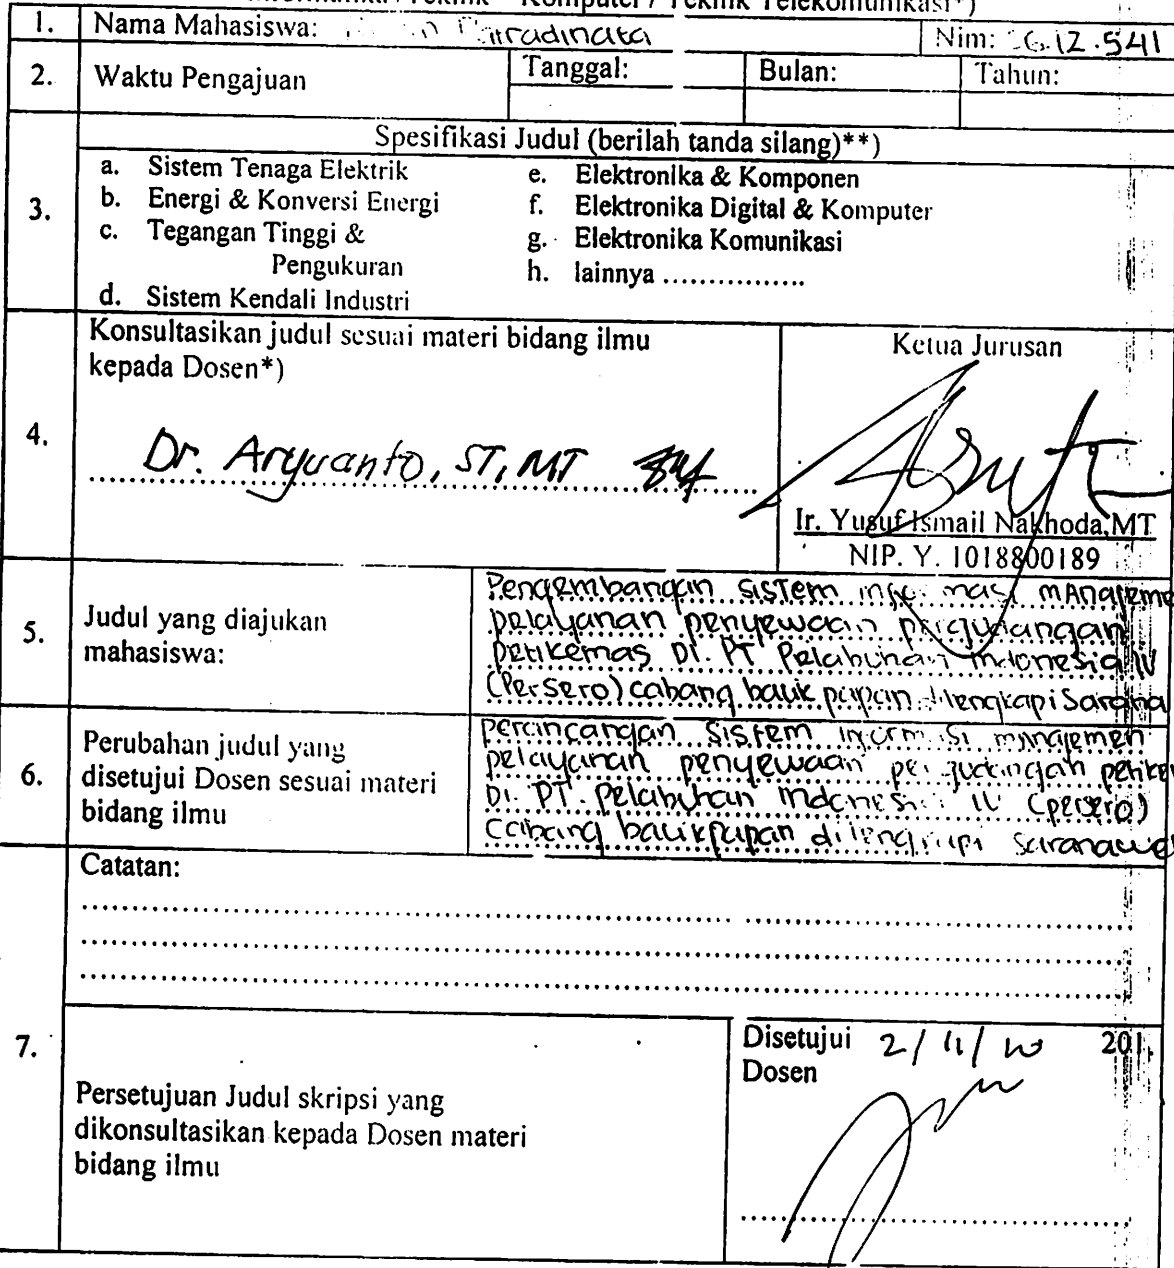 Komputer / Teknik Telekomunikasi*)
1. Nama Mahasiswa: Nim: 12.541
2. Waktu Pengajuan Tanggal: Bulan: Tahun:
3. Spesifikasi Judul (berilah tanda silang)**)
a. Sistem Tenaga Elektrik
b. Energi & Konversi Energi
c. Tegangan Tinggi &
Pengukuran
d. Sistem Kendali Industri
e. Elektronika & Komponen
f. Elektronika Digital & Komputer
g. Elektronika Komunikasi
h. lainnya ................
4. Konsultasikan judul sesuai materi bidang ilmu
kepada Dosen*)
Dr. Aryuanto, ST, MT
Ketua Jurusan
Ir. Yusuf Ismail Nakhoda, MT
NIP. Y. 1018800189
5. Judul yang diajukan
mahasiswa:
Pengembangan sistem informasi manajeme
pelayanan penyewaan pergudangan
petikemas Di. PT Pelabuhan Indonesia IV
(Persero) cabang balik papan dilengkapi Sarana
6. Perubahan judul yang
disetujui Dosen sesuai materi
bidang ilmu
perancangan sistem informasi manajemen
pelayanan penyewaan pergudangan petike
Di. PT. pelabuhan Indonesia IV (persero)
cabang balikpapan dilengkapi sarana we
Catatan:
7. Persetujuan Judul skripsi yang
dikonsultasikan kepada Dosen materi
bidang ilmu
Disetujui 2/11/10 201
Dosen